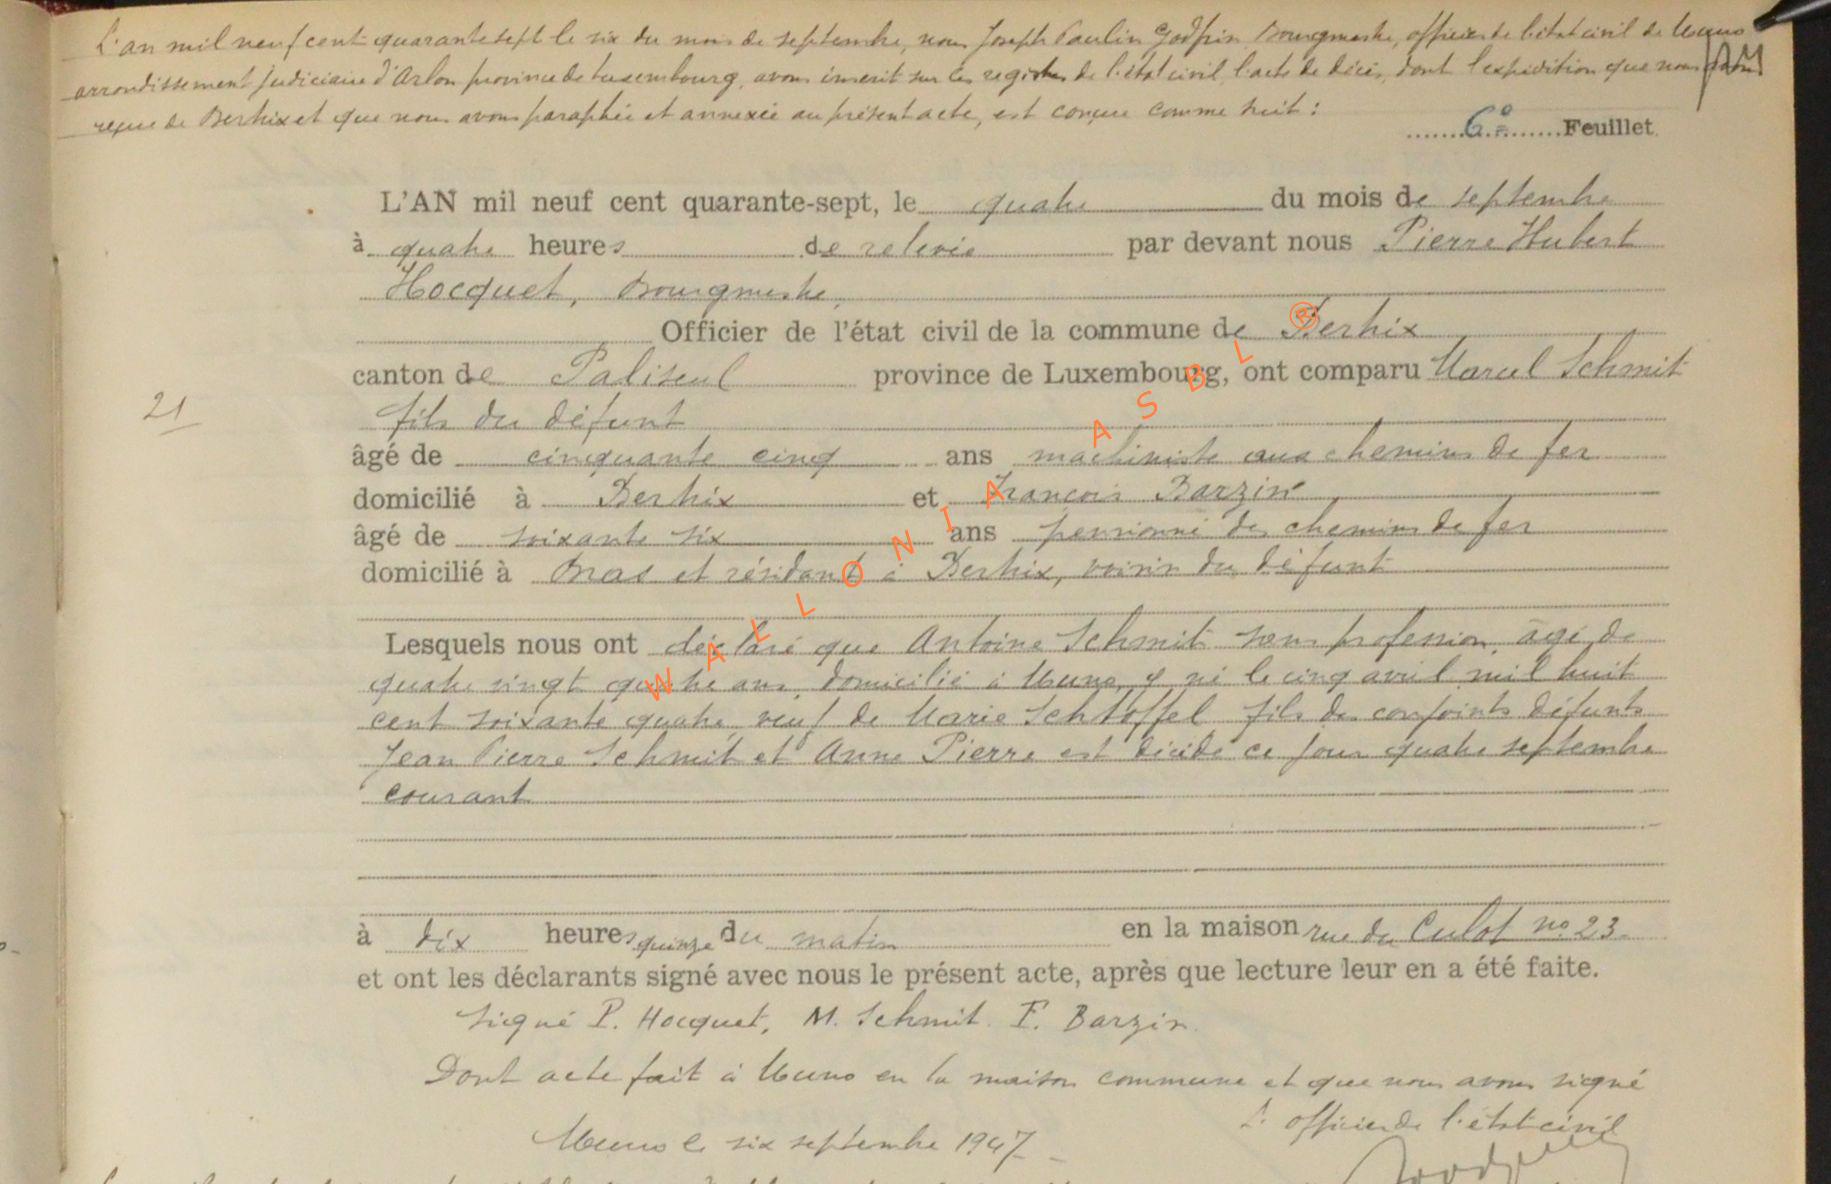 L'an mil neuf cent quarante sept le six du mois de septembre, nous Joseph Paulin Godfrin Bourgmestre, officier de l'état civil de Muno
arrondissement judiciaire d'Arlon province de Luxembourg, avons inscrit sur les registres de l'état civil l'acte de décès, dont l'expédition que nous avons
reçue de Bertrix et que nous avons paraphée et annexée au présent acte, est conçue comme suit :
6e Feuillet
L'AN mil neuf cent quarante-sept, le quatre du mois de septembre
à quatre heures de relevée par devant nous Pierre Hubert
Hocquet, Bourgmestre,
Officier de l'état civil de la commune de Bertrix
canton de Paliseul province de Luxembourg, ont comparu Marcel Schmit
21
fils du défunt
âgé de cinquante cinq ans machiniste aux chemins de fer
domicilié à Bertrix et François Barzin
âgé de soixante six ans pensionné des chemins de fer
domicilié à Bras et résidant à Bertrix, voisin du défunt
Lesquels nous ont déclaré que Antoine Schmit sans profession, âgé de
quatre vingt quatre ans, domicilié à Muno, y né le cinq avril mil huit
cent soixante quatre, veuf de Marie Schtoffel fils des conjoints défunts
Jean Pierre Schmit et Anne Pierre est décédé ce jour quatre septembre
courant
à dix heures quinze du matin en la maison rue du Culot no 23
et ont les déclarants signé avec nous le présent acte, après que lecture leur en a été faite.
Signé P. Hocquet, M. Schmit. F. Barzin.
Dont acte fait à Muno en la maison commune et que nous avons signé
L'officier de l'état civil
Muno le six septembre 1947
WALLONIA ASBL ®